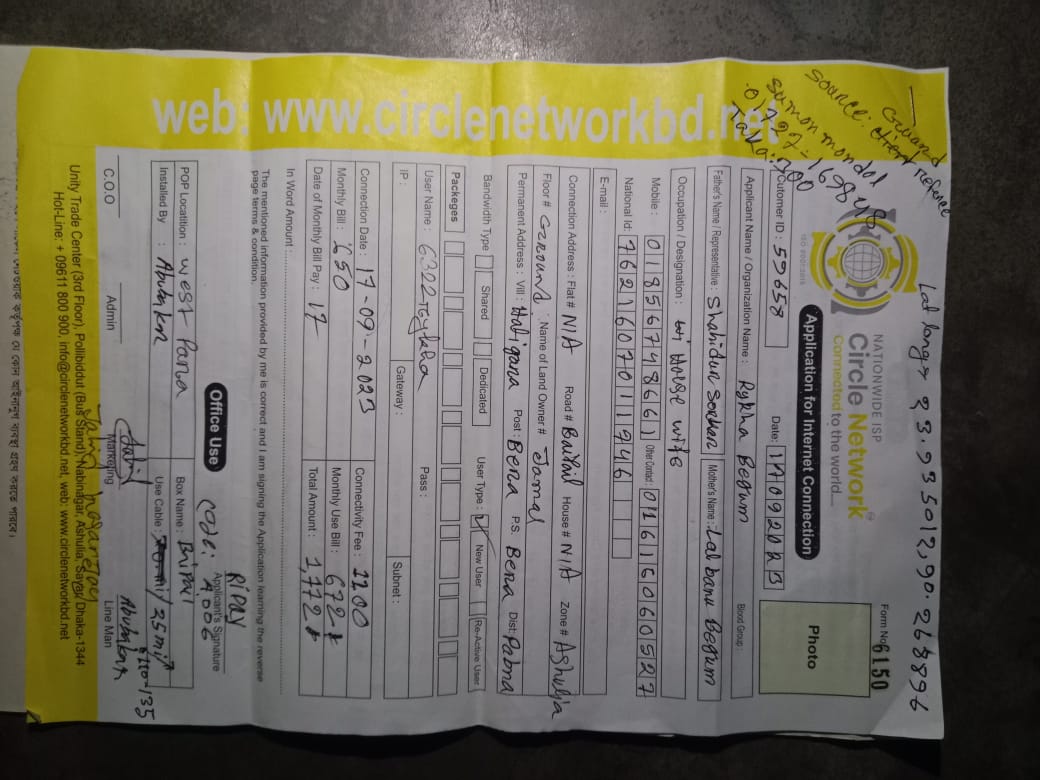 Lat long → 23.935012,90.268896
Source: client Referal
Sumon mondal
01797-169848
NATIONWIDE ISP
Circle Network
Connected to the world...
ISO 9001:2015
Application for Internet Connection
Form No 6150
Customer ID : 59658
Date: 17092023
Photo
Applicant Name / Organization Name : Rykha Begum
Blood Group :
Father's Name / Representative : Shahidur Sarker Mother's Name : Lal banu Begum
Occupation / Designation : House wife
Mobile : 01856748661 Other Contact : 01616060527
National Id : 7621607011946
E-mail :
Connection Address : Flat # N/A Road # Baipail House # N/A Zone # Ashulia
Floor # Ground Name of Land Owner # Jamal
Permanent Address : Vill : Hatigara Post : Bera P.S. Bera Dist: Pabna
Bandwidth Type Shared Dedicated User Type : New User Re-Active User
Packeges
User Name : Pass :
IP : Gateway : Subnet :
Connection Date : 17-09-2023 Connectivity Fee : 1200
Monthly Bill : 550 Monthly Use Bill : 672
Date of Monthly Bill Pay : 17 Total Amount : 1,772
In Word Amount :
The mentioned information provided by me is correct and I am signing the Application learning the reverse
page terms & condition.
Ripay
Applicant's Signature
Code: 7006
Office Use
POP Location : West Para Box Name : Bripail
Installed By : Abubakar Use Cable : 25 mi
110-135
C.O.O Admin Marketing Line Man
Abubakar
Unity Trade Center (3rd Floor), Pollibiddut (Bus Stand), Nabinagar, Ashulia, Savar, Dhaka-1344
Hot-Line: + 09611 800 900, info@circlenetworkbd.net, web: www.circlenetworkbd.net
web: www.circlenetworkbd.net